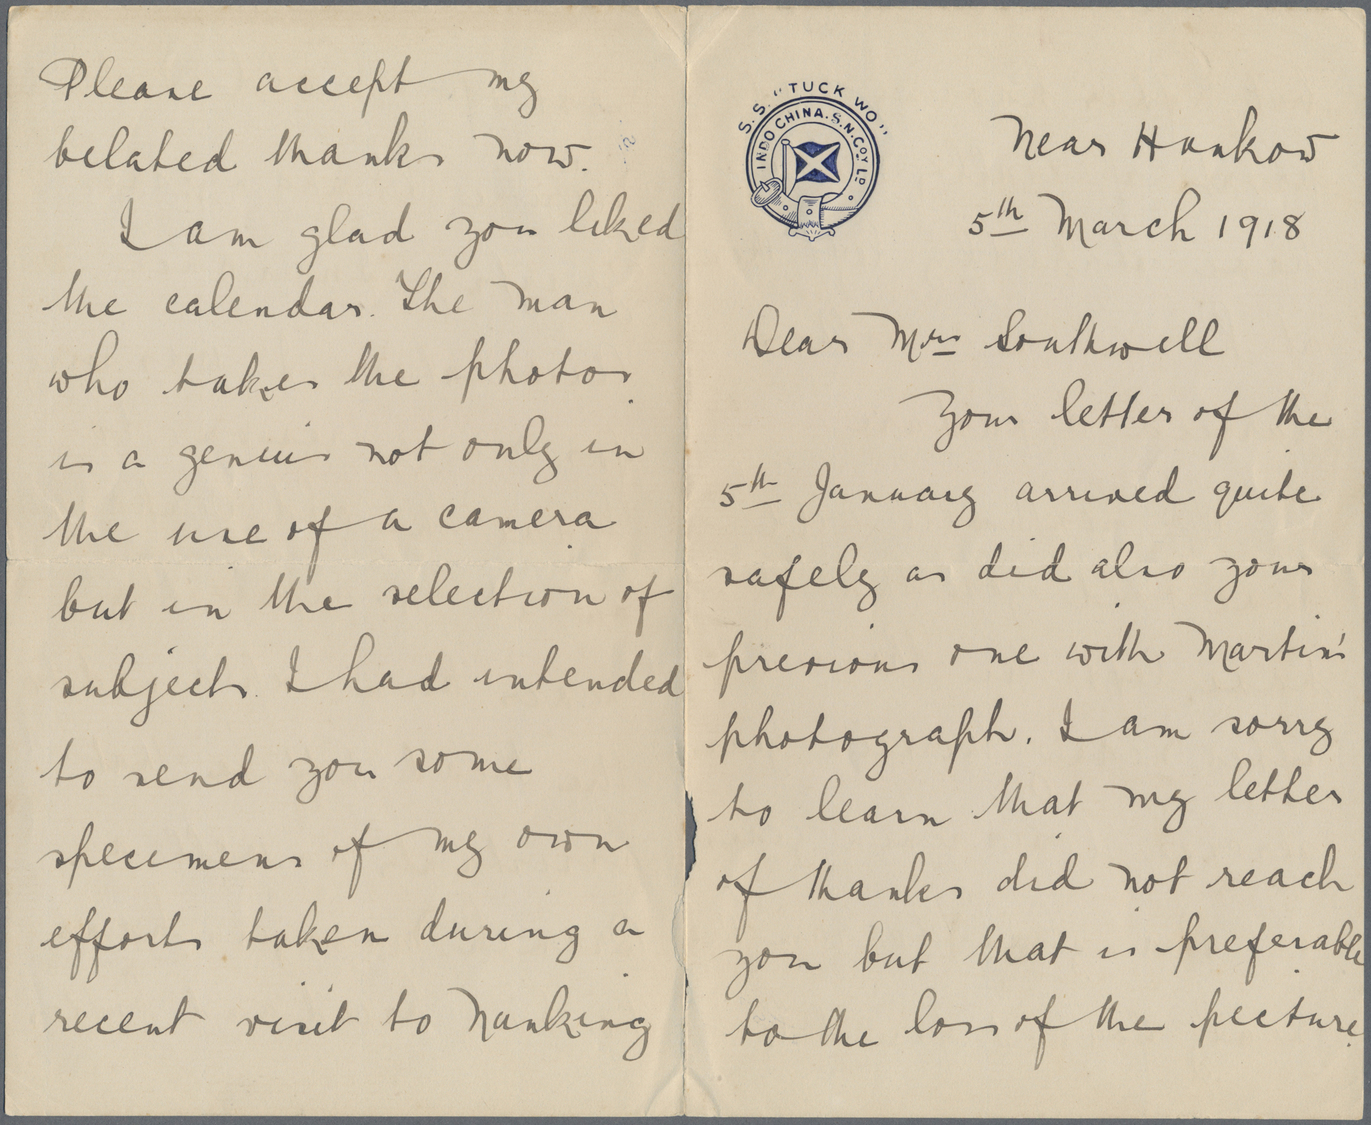 S.S. "TUCK WO"
INDO CHINA. S. N. COY. LD.
Near Hankow
5th March 1918
Dear Mrs Southwell
Your letter of the
5th January arrived quite
safely as did also your
previous one with Martin's
photograph. I am sorry
to learn that my letter
of thanks did not reach
you but that is preferable
to the loss of the picture.
Please accept my
belated thanks now.
I am glad you liked
the calendar. The man
who takes the photos
is a genius not only in
the use of a camera
but in the selection of
subjects. I had intended
to send you some
specimens of my own
efforts taken during a
recent visit to Nanking